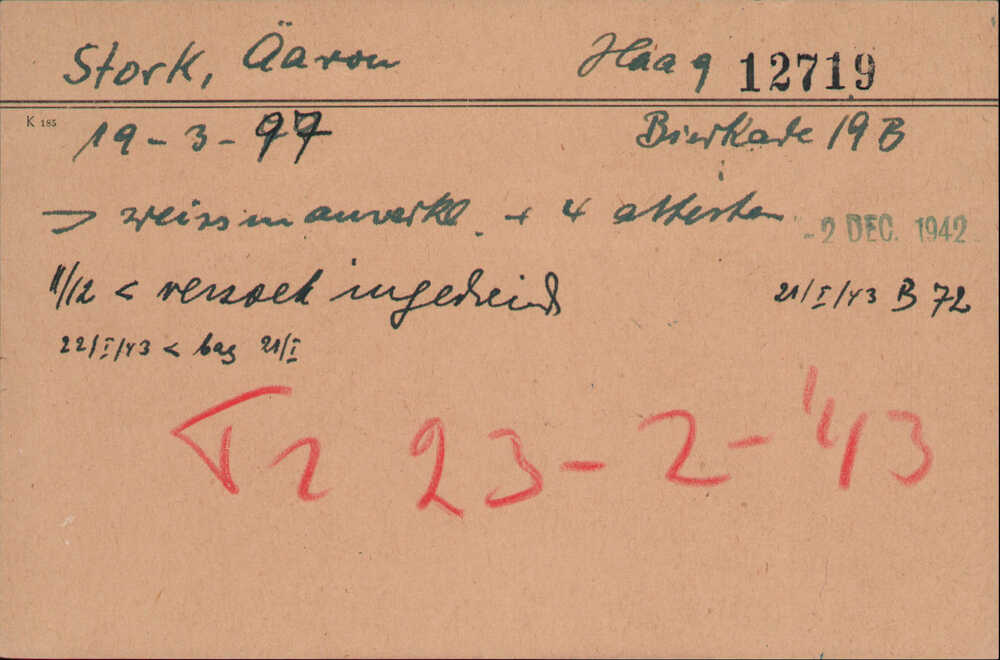 Stork, Äaron Haag 12719
K 185
19-3-97 Bierkade 19 B
+ 4 attesten -2 DEC. 1942
11/12 < verzoek ingediend 21/I/43 B 72
22/I/43 < bag 21/I
Tr 23-2-'43